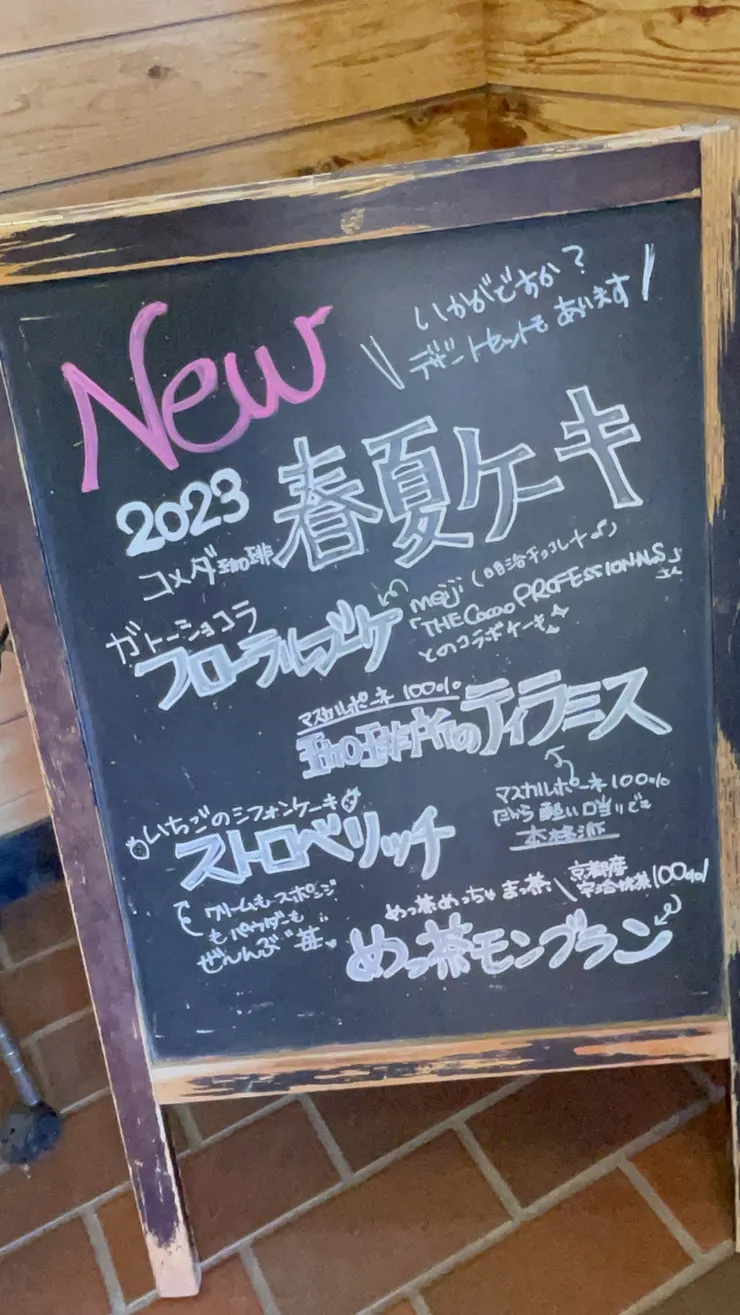 New
いかがですか?
デザートセットもあります
2023
コメダ珈琲
春夏ケーキ
ガトーショコラ
フローラルブーケ
meiji(明治チョコレート♪)
「THE Cacao PROFESSIONALS」
とのコラボケーキ
マスカルポーネ100%
珈琲所のティラミス
マスカルポーネ100%
だから 口当りで
本格派
いちごのシフォンケーキ
ストロベリッチ
クリームもスポンジ
もパウダーも
ぜんんぶ"苺♥
めっ茶めっちゃまっ茶
京都産
宇治抹茶100%
めっ茶モンブラン